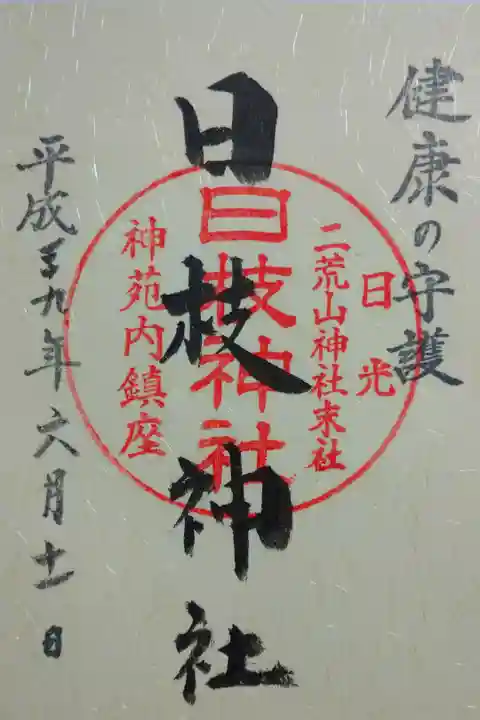 健康の守護
日光
二荒山神社末社
日枝神社
神苑内鎮座
日枝神社
平成二十九年六月十一日